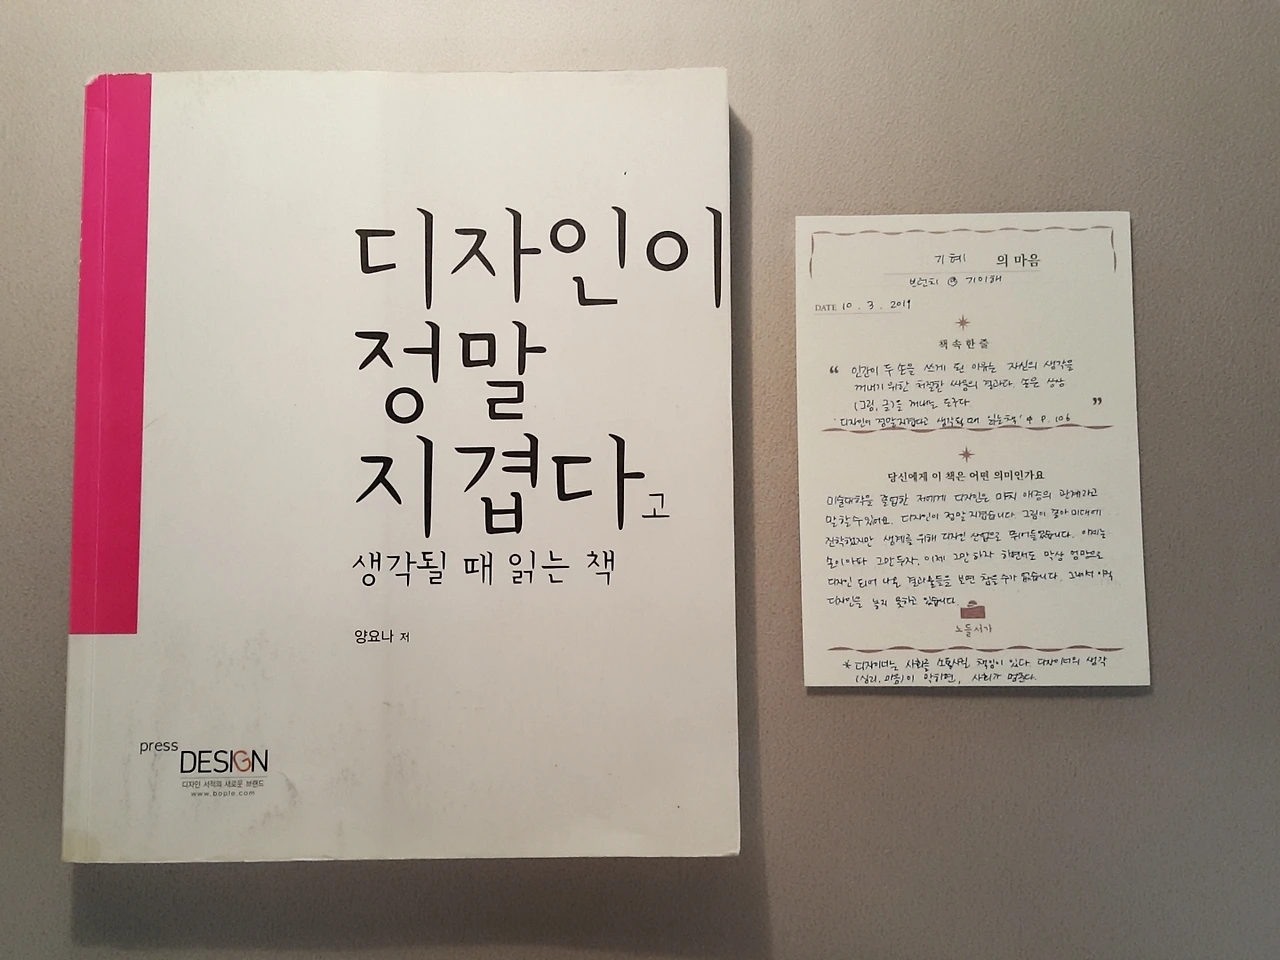 디자인이
정말
지겹다고
생각될 때 읽는 책
양요나 저
press
DESIGN
디자인 서적의 새로운 브랜드
www.bople.com
기혜 의 마음
브런치 @ 기이해
DATE 10 . 3 . 2019
책 속 한 줄
“ 인간이 두 손을 쓰게 된 이유는 자신의 생각을
꺼내기 위한 처절한 싸움의 결과다. 손은 상상
(그림, 글)을 꺼내는 도구다. ”
'디자인이 정말 지겹다고 생각될 때 읽는 책' P. 106
당신에게 이 책은 어떤 의미인가요
미술대학을 졸업한 저에게 디자인은 마치 애증의 관계라고
말할 수 있어요. 디자인이 정말 지겹습니다. 그림이 좋아 미대에
진학했지만 생계를 위해 디자인 산업으로 뛰어들었습니다. 이제는
그만두자, 이제 그만하자 하면서도 막상
디자인 되어 나온 결과물들을 보면 참을 수가 없습니다. 그래서 아직
디자인을 놓지 못하고 있습니다.
노들서가
* 디자이너는 사회를 소통시킬 책임이 있다. 디자이너의 생각
(심리, 마음)이 막히면, 사회가 멈춘다.